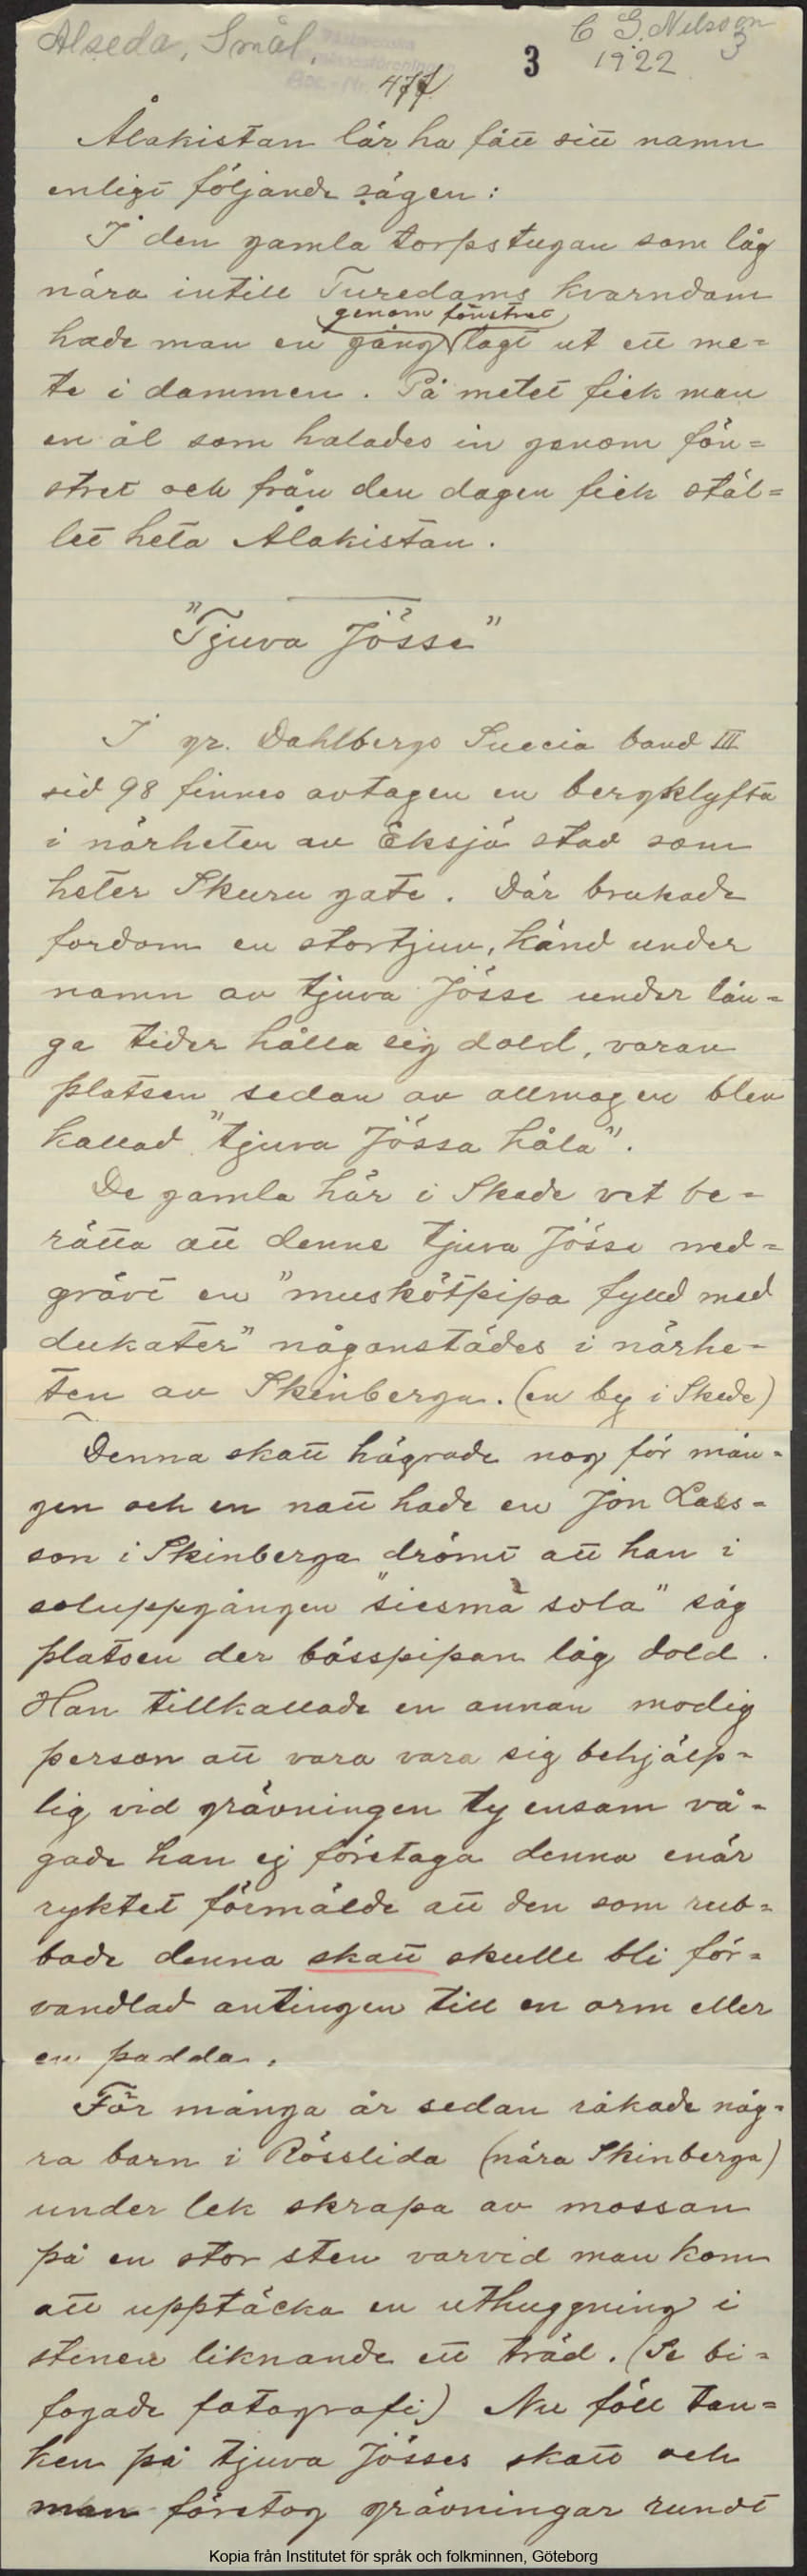 Alseda, Smål.
C G. Nilsson
1922
3
3
477
Ålakistan lär ha fått sitt namn
enligt följande sägen:
I den gamla torpstugan som låg
nära intill Turedams kvarndam
genom fönstret
hade man en gång lagt ut ett me=
te i dammen. På metet fick man
en ål som halades in genom fön=
stret och från den dagen fick stäl=
let heta Ålakistan.
"Tjuva Jösse"
I gr. Dahlbergs Suecia band III
sid 98 finnes avtagen en bergklyfta
i närheten av Eksjö stad som
heter Skuru gata. Där brukade
fordom en stortjuv, känd under
namn av tjuva Jösse under lån=
ga tider hålla sig dold, varav
platsen sedan av allmogen blev
kallad "tjuva Jössa håla".
De gamla här i Skede vet be=
rätta att denne tjuva Jösse ned=
grävt en "muskötpipa fylld med
dukater" någonstädes i närhe=
ten av Skinberga. (en by i Skede)
Denna skatt hägrade nog för mån=
gen och en natt hade en Jon Lars=
son i Skinberga drömt att han i
soluppgången "siesmä sola" såg
platsen der bösspipan låg dold.
Han tillkallade en annan modig
person att vara vara sig behjälp=
lig vid grävningen ty ensam vå=
gade han ej företaga denna enär
ryktet förmälde att den som rub=
bade denna skatt skulle bli för=
vandlad antingen till en orm eller
en padda.
För många år sedan råkade någ=
ra barn i Rösslida (nära Skinberga)
under lek skrapa av mossan
på en stor sten varvid man kom
att upptäcka en uthuggning i
stenen liknande ett träd. (Se bi=
fogade fotografi) Nu föll tan=
ken på tjuva Jösses skatt och
man företog grävningar rundt
Kopia från Institutet för språk och folkminnen, Göteborg